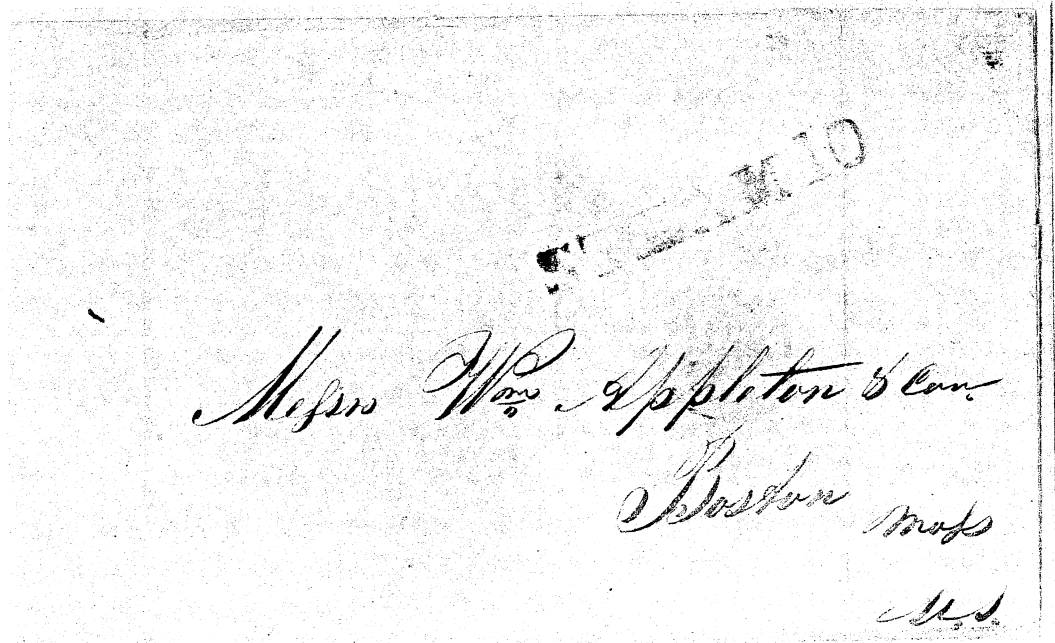 STEAM 10
Messrs Wm. Appleton & Com
Boston Mass
U.S.